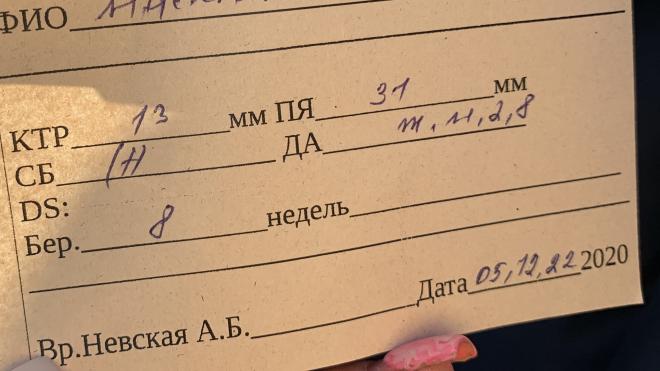 ФИО
КТР 13 мм ПЯ 31 мм
СБ (+) ДА ж.м. 2,8
DS:
Бер. 8 недель
Дата 05,12,22 2020
Вр.Невская А.Б.